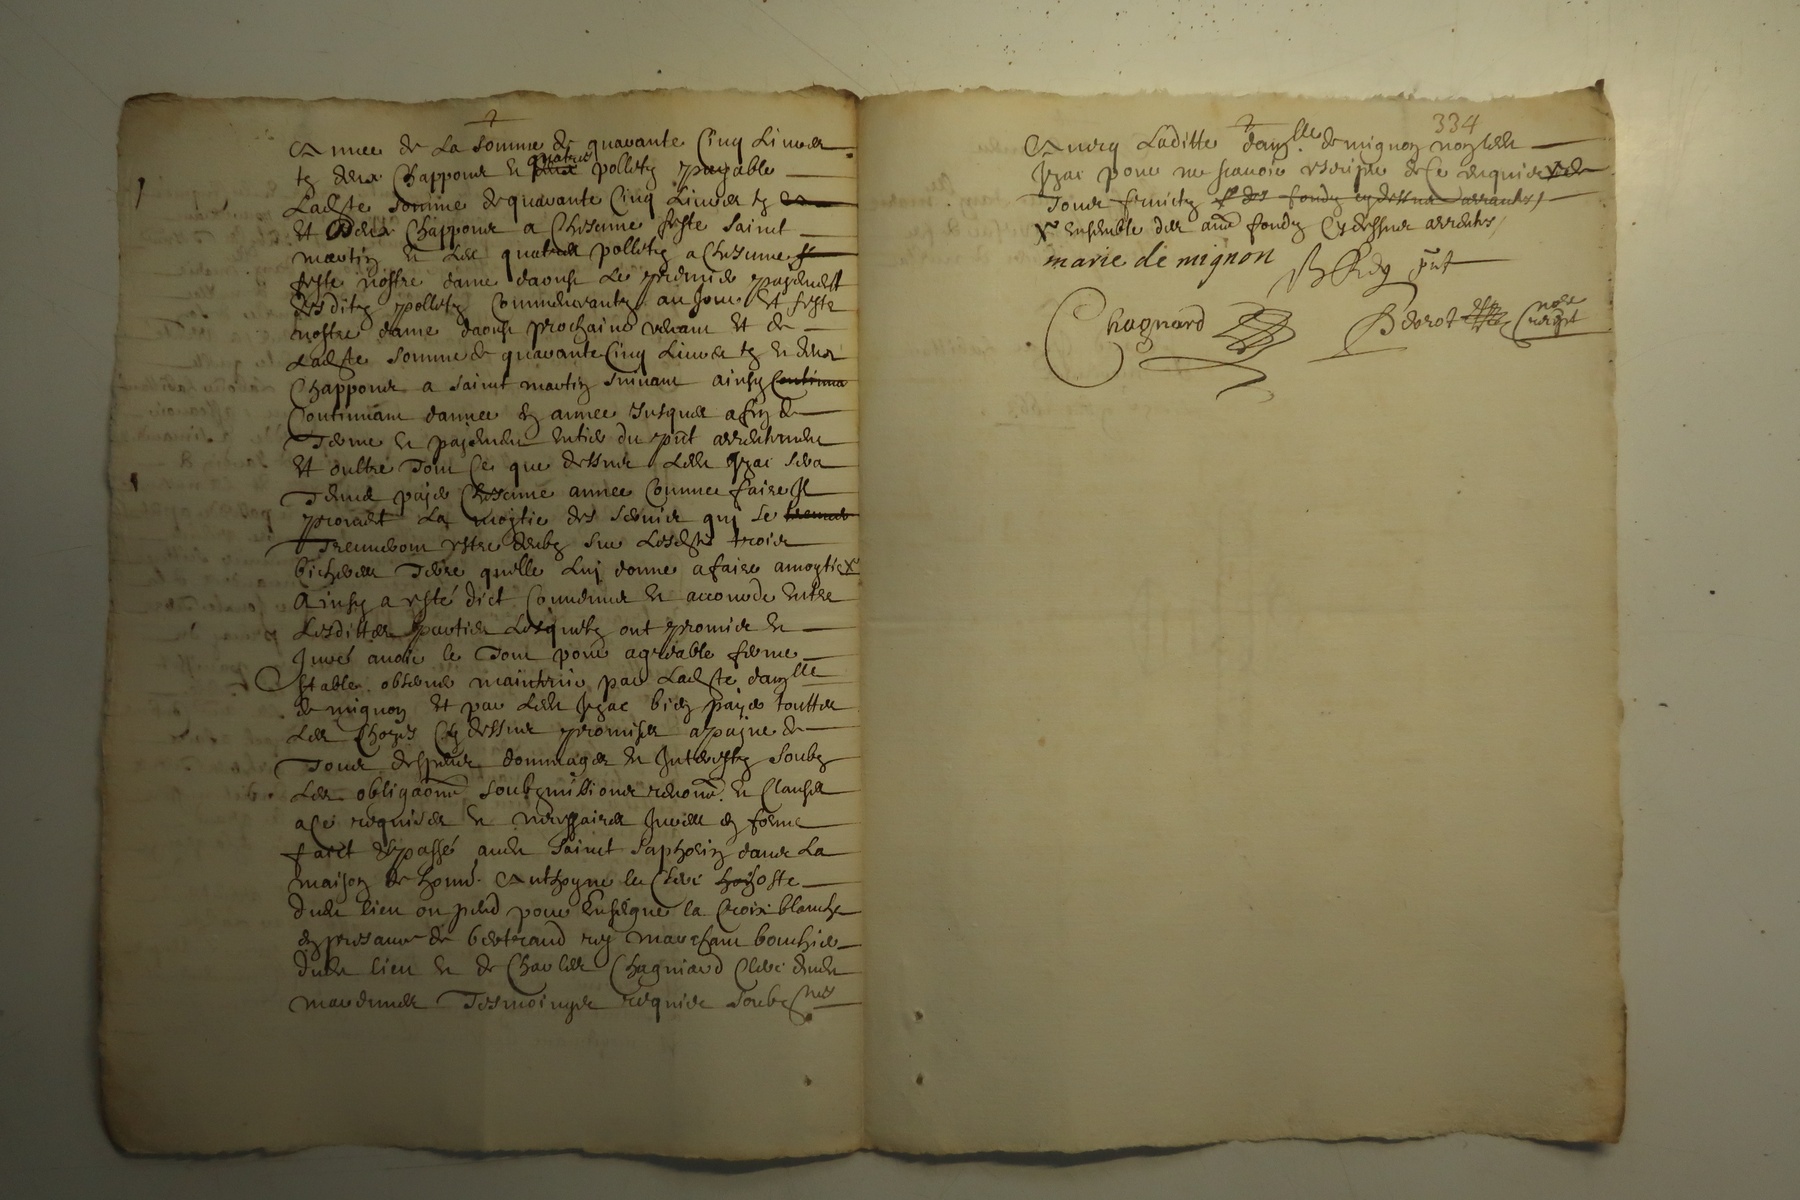 Annee de La somme de quarante Cinq Livres
tz deux Chappons et quatre polletz payable
Ladite somme de quarante Cinq Livres tz
Et deux Chappons a Chescune feste Saint
martin et les quatre polletz a Chescune
feste nostre dame daoust Le premier payement
desditz polletz Commensantz au Jour Et feste
nostre dame daoust prochain venant Et de
Ladite somme de quarante Cinq Livres tz et deux
Chappons a Saint martin suivant ainsy Continua
Continuant dannee en annee Jusques a fin de
Terme et payement entier du pnt arrentement
Et oultre Tout Ce que dessus Ledit sera
Tenu payer Chescune annee Comme
La moytie des qui se
Treuveront estre sur Lesdites trois
bicherees Terre quelle Luy donne a faire a moytie
Ainsy a esté dict Convenu et accorde Entre
Lesdittes parties Lesquelz ont promis et
Juré avoir le Tout pour agreable ferme
stable observe maintenir par Ladite damlle
de mignon Et par Ledit bien payer touttes
Les Choses Cy dessus promises a payne de
Tous despens dommages et Interestz Soubz
Les obligaons soubzmitions renons et Clauses
a Ce requises et necessaires Jurees en forme
faict et passé audit Sainct Saphorin dans La
maison de honn. Anthoyne le Clerc hoste
dudit lieu ou pend pour Enseigne la Croix blanche
en presance de bertrand rey marchant bouchier
dudit lieu et de Charles Chagniard Clerc dudit
mandement Tesmoings requis soubznes
334
Avecq Laditte damlle de mignon non Ledit
pour ne scavoir escripre de Ce requis
Tous fruictz des fondz cy dessus arrantes
Ensemble des au[tres] fondz Cy dessus arrentes
marie de mignon
B Rey pnt
Chagnard
Bdorot